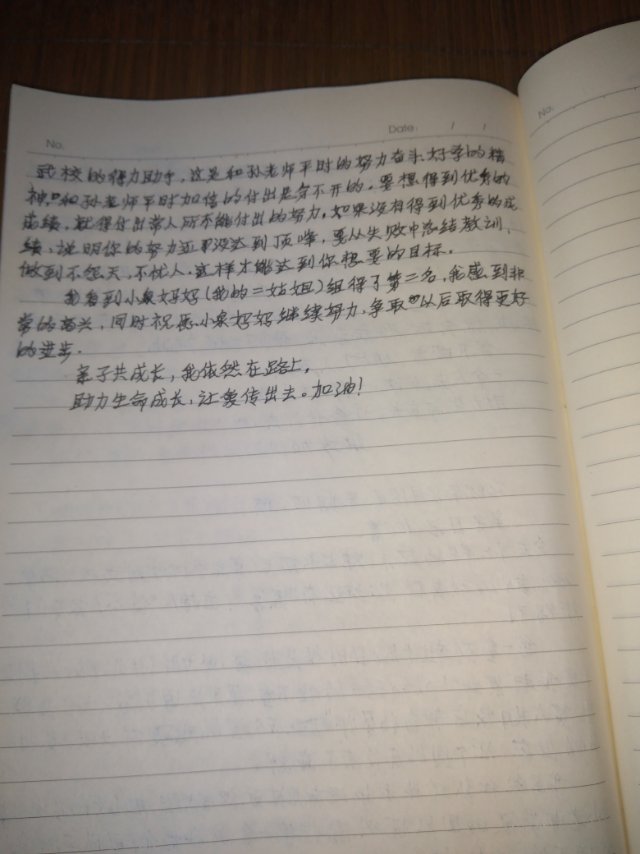 No.
Date: / /
No.
武校的得力助手,这是和孙老师平时的努力奋斗好学的精
神,和孙老师平时加倍的付出是分不开的。要想得到优秀的
成绩,就得付出常人所不能付出的努力,如果没有得到优秀的成
绩,说明你的努力还没达到顶峰,要从失败中总结教训,
做到不怨天,不忧人,这样才能达到你想要的目标。
我看到小泉妈妈(我的二姑姐)组得了第二名,我感到非
常的高兴,同时祝愿小泉妈妈继续努力,争取以后取得更好
的进步。
亲子共成长,我依然在路上,
助力生命成长,让爱传出去。加油!